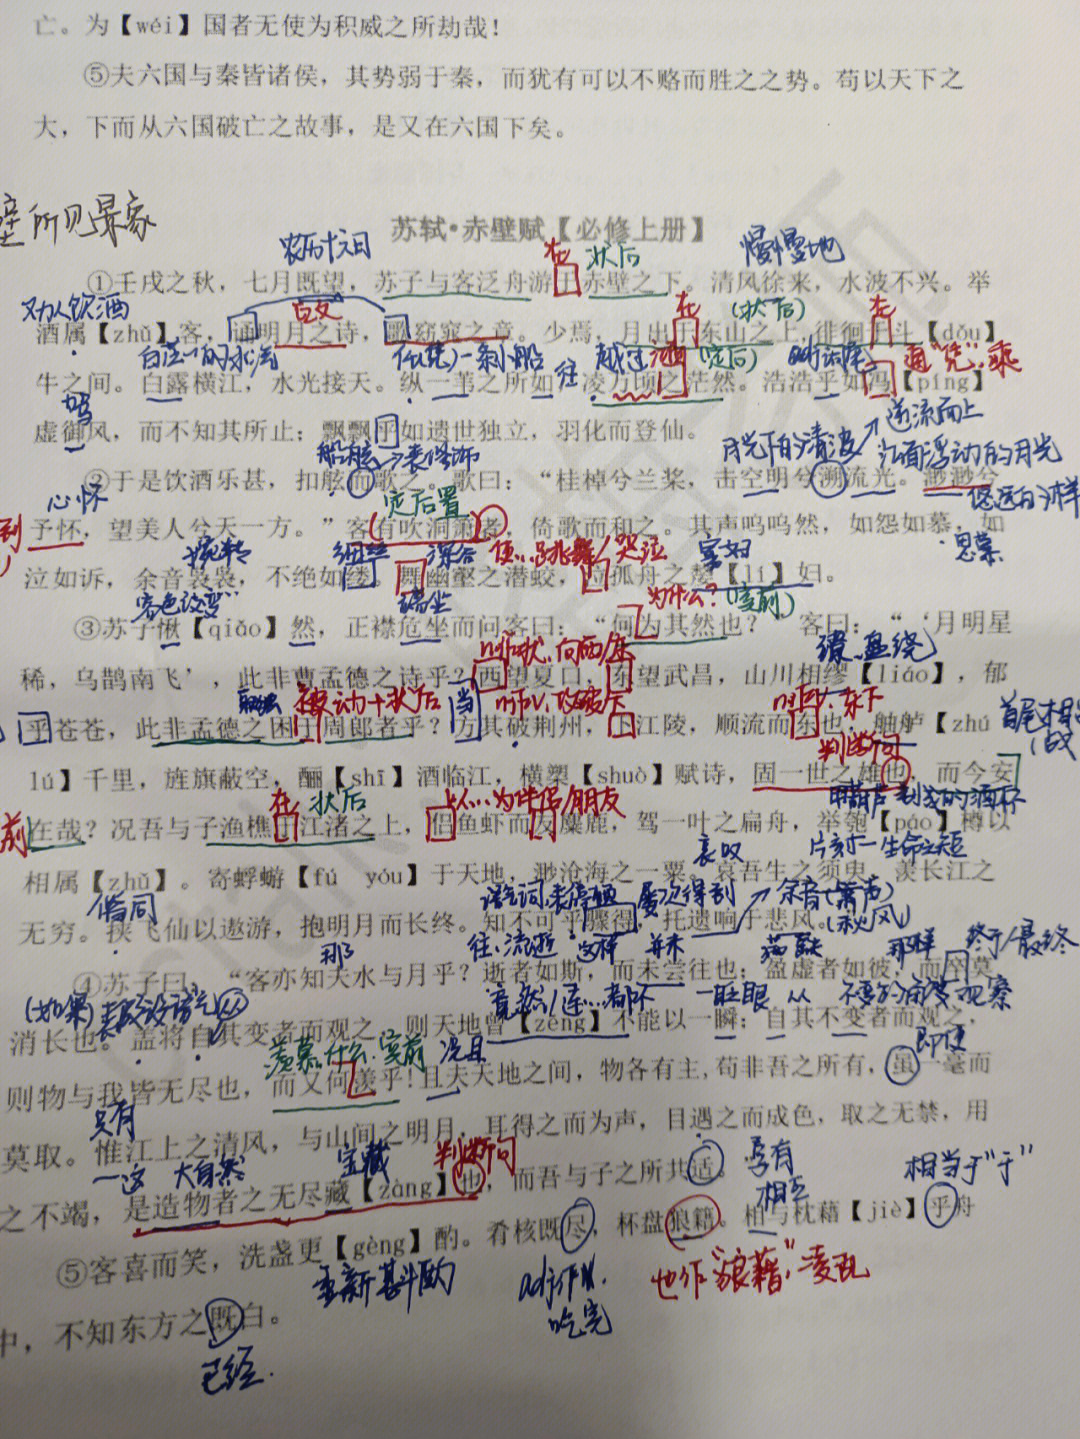 亡。为【wéi】国者无使为积威之所劫哉！
⑤夫六国与秦皆诸侯，其势弱于秦，而犹有可以不赂而胜之之势。苟以天下之
大，下而从六国破亡之故事，是又在六国下矣。
壁所见景象
苏轼·赤壁赋【必修上册】
农历十六日 在 状后 慢慢地
①壬戌之秋，七月既望，苏子与客泛舟游于赤壁之下。清风徐来，水波不兴。举
劝人饮酒 互文 在 (状后) 在
酒属【zhǔ】客，诵明月之诗，歌窈窕之章。少焉，月出于东山之上，徘徊于斗【dǒu】
白茫一的水汽 一条小船 往 越过 (定后) 通“凭”：乘
牛之间。白露横江，水光接天。纵一苇之所如，凌万顷之茫然。浩浩乎如冯【píng】
驾 逆流而上
虚御风，而不知其所止；飘飘乎如遗世独立，羽化而登仙。
船舷 → 表修饰 月光下的清波 江面浮动的月光
②于是饮酒乐甚，扣舷而歌之。歌曰：“桂棹兮兰桨，击空明兮溯流光。渺渺兮
心怀 (定后置) 悠远的样
予怀，望美人兮天一方。”客有吹洞箫者，倚歌而和之。其声呜呜然，如怨如慕，如
婉转 细丝 深谷 使…跳舞/哭泣 寡妇 思慕
泣如诉，余音袅袅，不绝如缕。舞幽壑之潜蛟，泣孤舟之嫠【lí】妇。
容色改变 端坐 为什么？(宾前)
③苏子愀【qiǎo】然，正襟危坐而问客曰：“何为其然也？”客曰：“‘月明星
向西/东 缭、盘绕
稀，乌鹊南飞’，此非曹孟德之诗乎？西望夏口，东望武昌，山川相缪【liáo】，郁
被动+状后 当 攻破/下 东下
乎苍苍，此非孟德之困于周郎者乎？方其破荆州，下江陵，顺流而东也，舳舻【zhú
判断句
lú】千里，旌旗蔽空，酾【shī】酒临江，横槊【shuò】赋诗，固一世之雄也，而今安
在 状后 以…为伴侣/朋友 用葫芦制成的酒杯
在哉？况吾与子渔樵于江渚之上，侣鱼虾而友麋鹿，驾一叶之扁舟，举匏【páo】樽以
哀叹 片刻一生命之短
相属【zhǔ】。寄蜉蝣【fú yóu】于天地，渺沧海之一粟。哀吾生之须臾，羡长江之
偕同 语气词，表停顿 屡次得到 → 余音(箫声) (秋风)
无穷。挟飞仙以遨游，抱明月而长终。知不可乎骤得，托遗响于悲风。”
那 往、流逝 这样 并未 那样 终于/最终
④苏子曰：“客亦知夫水与月乎？逝者如斯，而未尝往也；盈虚者如彼，而卒莫
(如果) 竟然/连…都不 一眨眼 从 不变的角度 观察
消长也。盖将自其变者而观之，则天地曾【zēng】不能以一瞬；自其不变者而观之，
羡慕什么，宾前 况且 即使
则物与我皆无尽也，而又何羡乎！且夫天地之间，物各有主，苟非吾之所有，虽一毫而
只有
莫取。惟江上之清风，与山间之明月，耳得之而为声，目遇之而成色，取之无禁，用
一这 大自然 宝藏 判断句 享有
之不竭，是造物者之无尽藏【zàng】也，而吾与子之所共适。”
相互 相当于“于”
⑤客喜而笑，洗盏更【gèng】酌。肴核既尽，杯盘狼籍。相与枕藉【jiè】乎舟
重新斟酌 adj作v. 吃完 也作“狼藉”，凌乱
中，不知东方之既白。
已经.